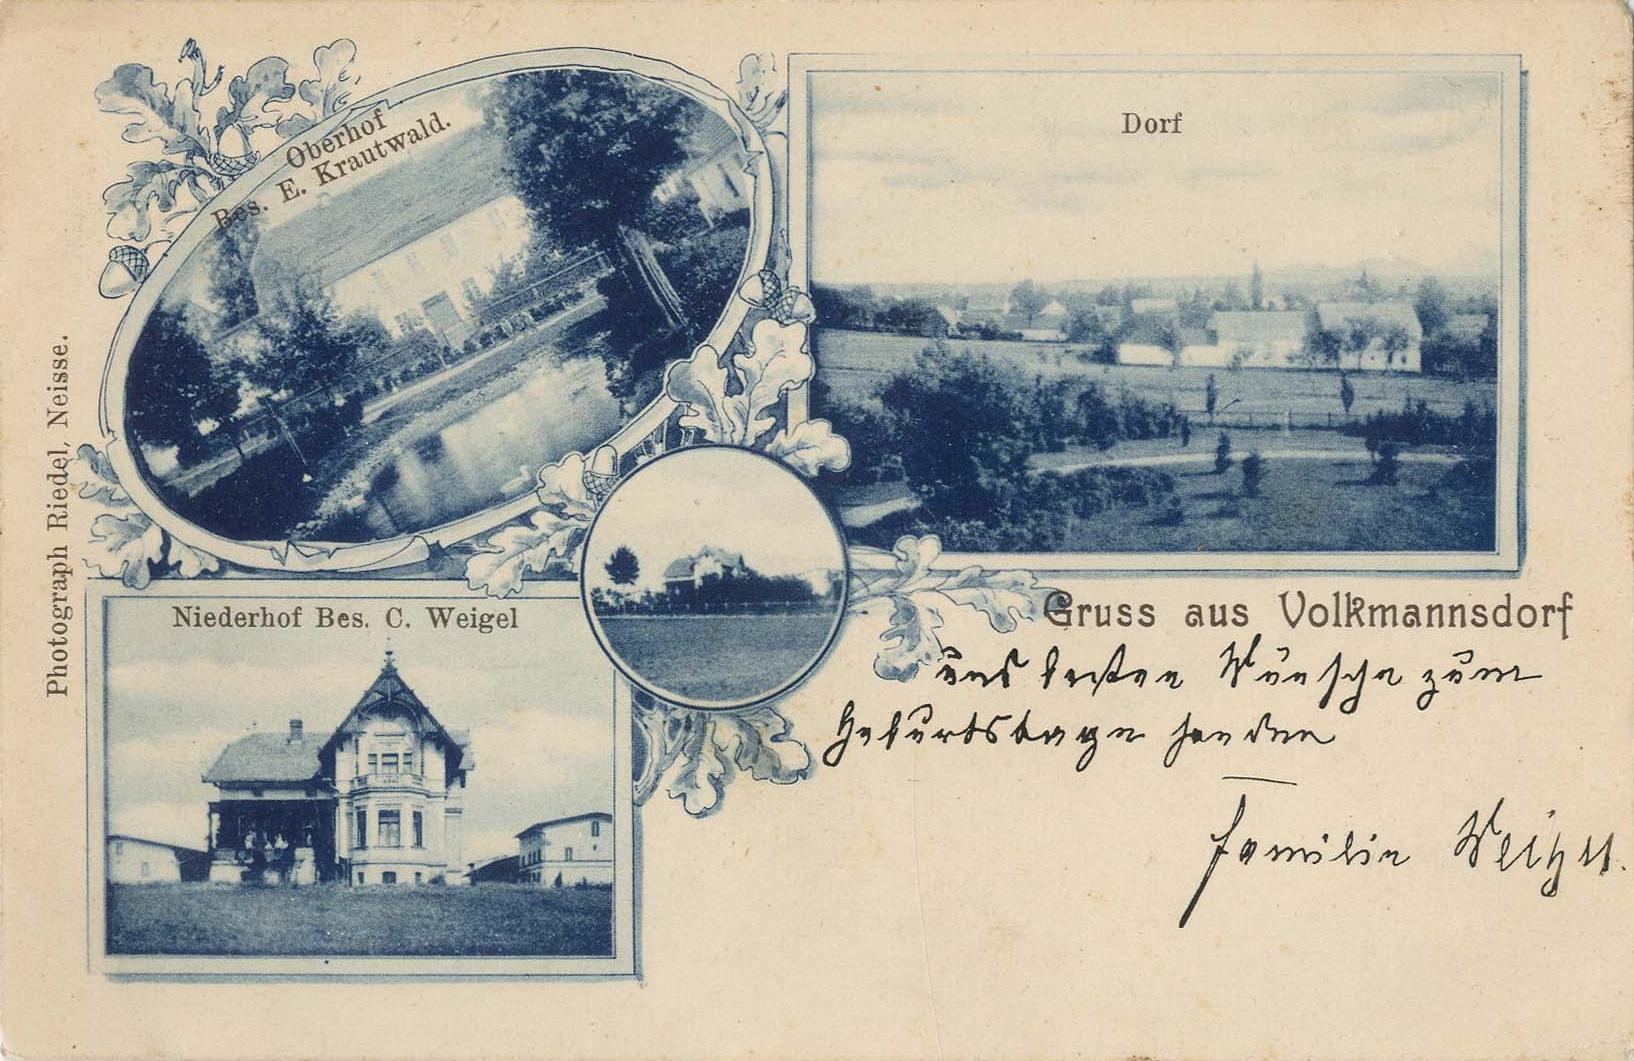 Oberhof
Bes. E. Krautwald.
Dorf
Photograph Riedel, Neisse.
Niederhof Bes. C. Weigel
Gruss aus Volkmannsdorf
und besten Wünsche zum
Geburtstage senden
Familie Weigel.